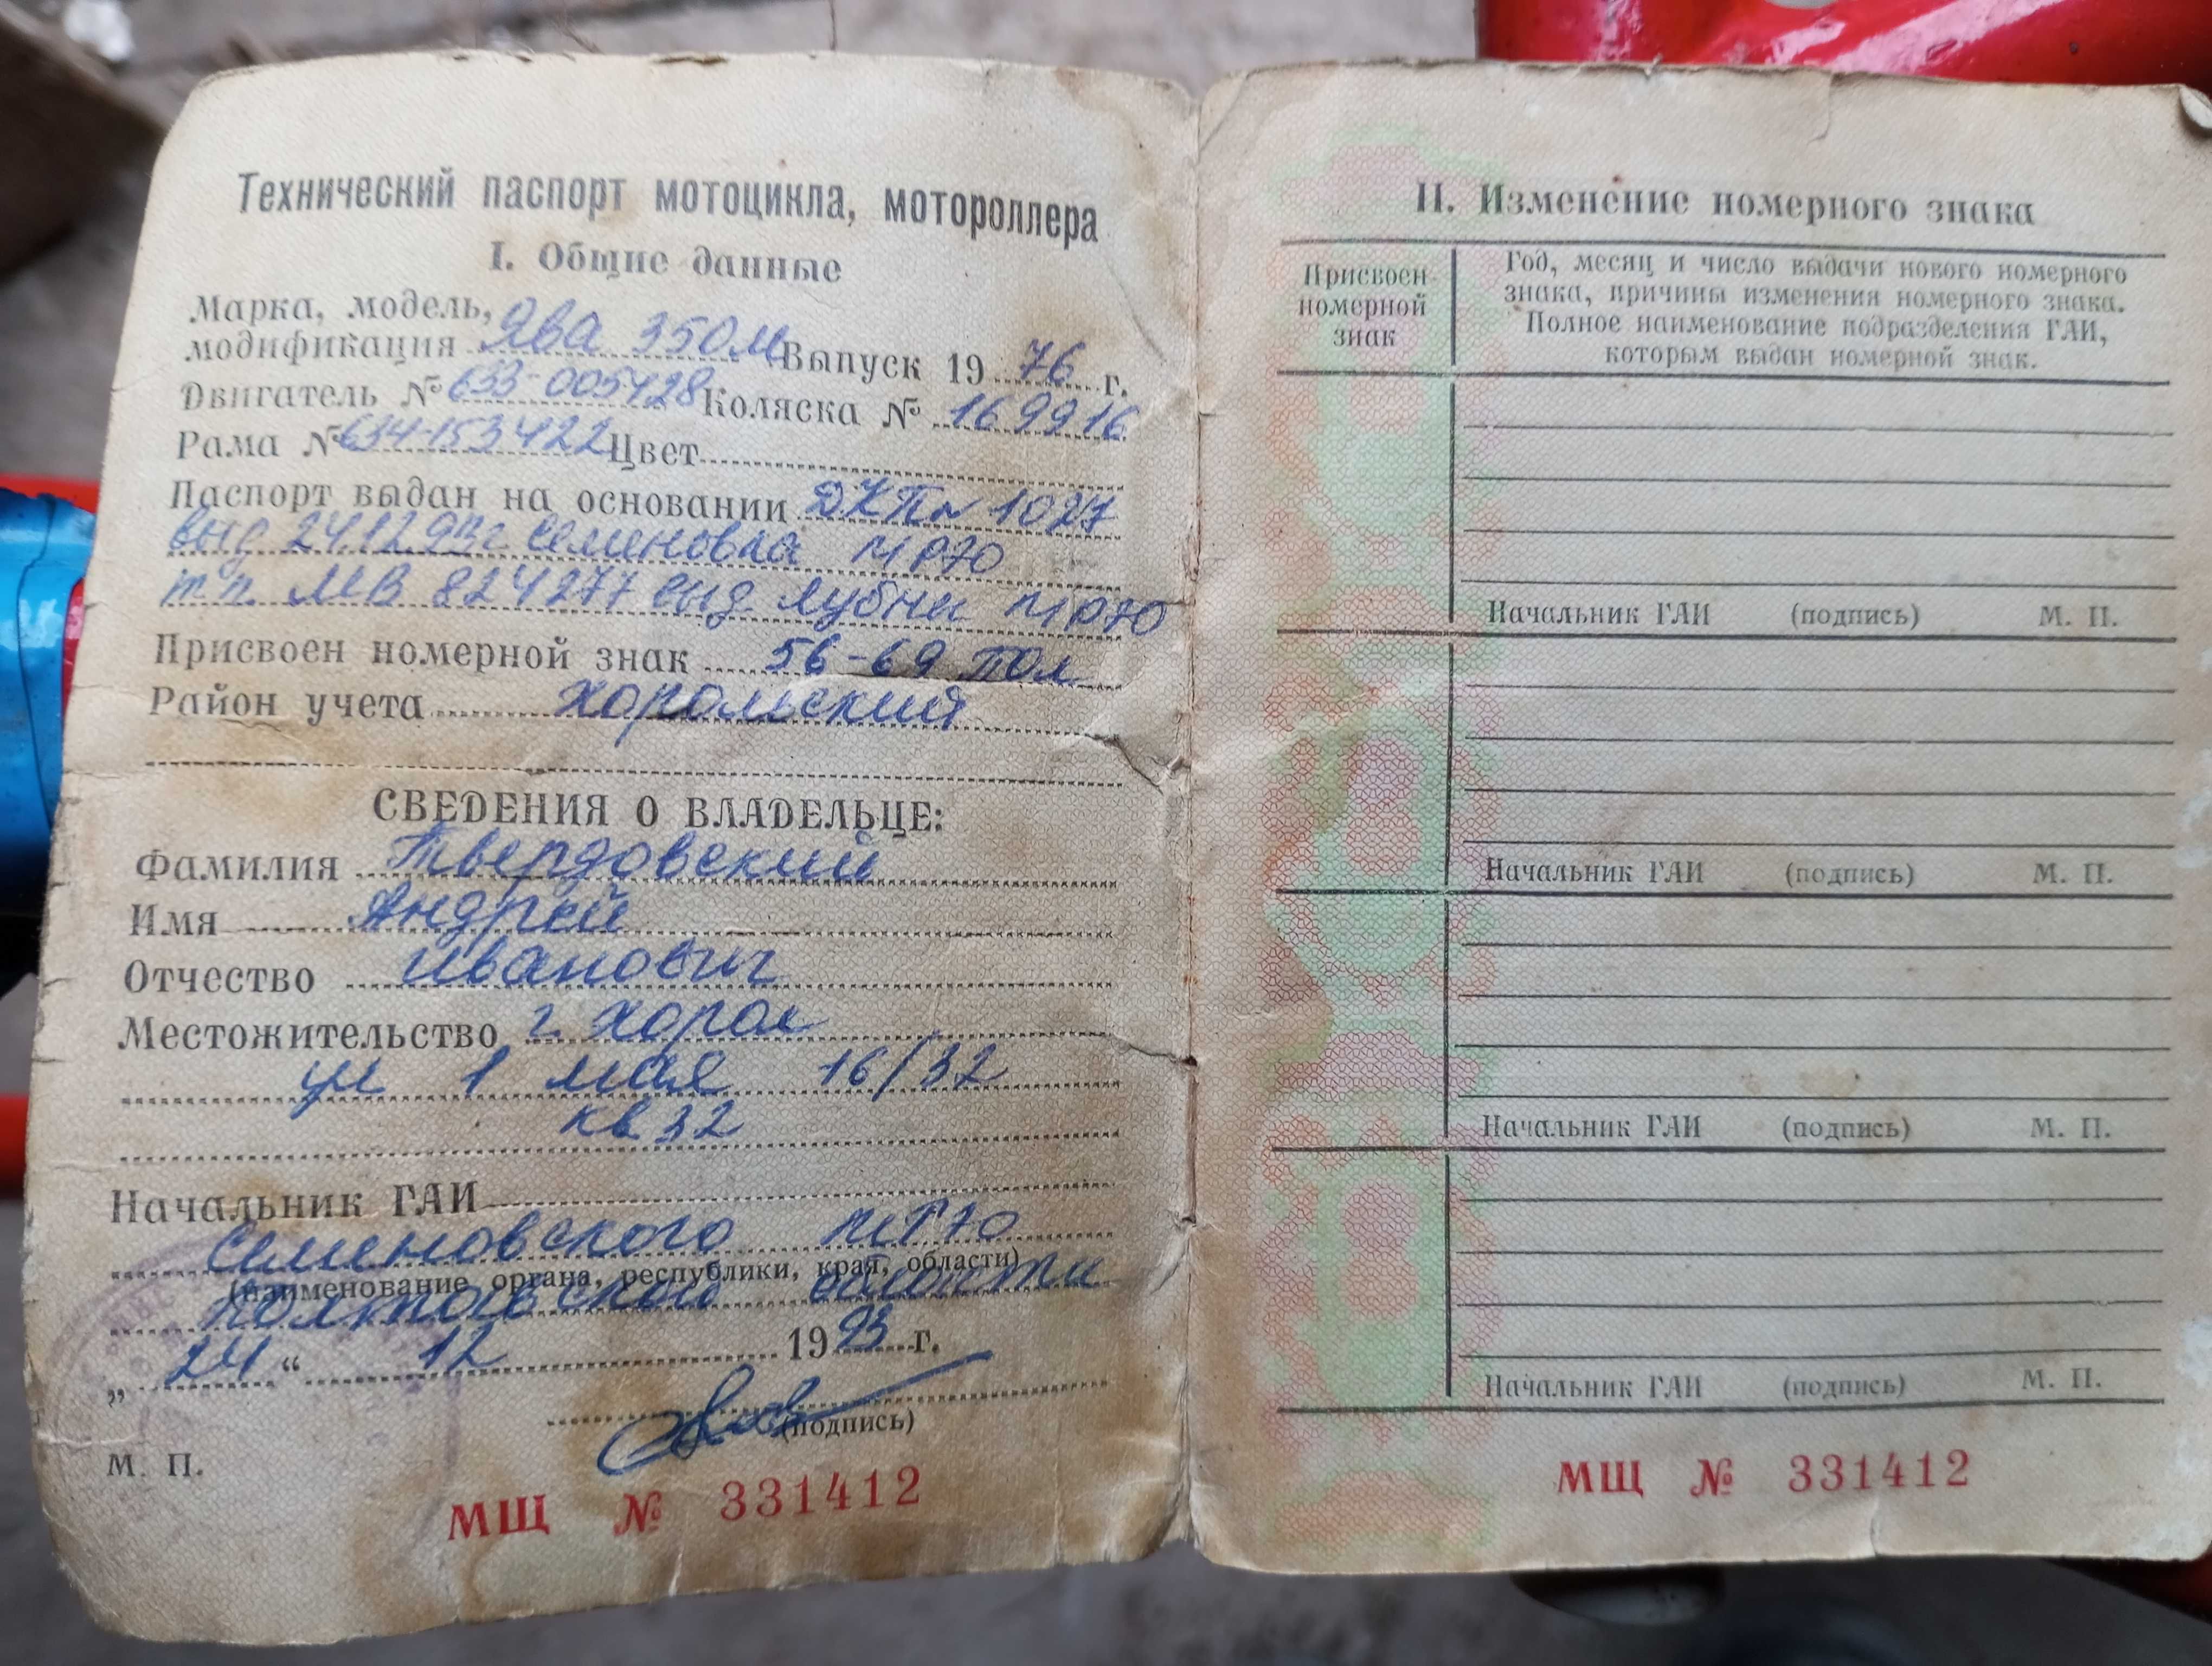 Технический паспорт мотоцикла, мотороллера
I. Общие данные
Марка, модель,
модификация Ява 350М Выпуск 19 76 г.
Двигатель № 633-005428 Коляска № 169916
Рама № 634-153422 Цвет
Паспорт выдан на основании ДКП № 1027
выд 24.12.93г Семеновка МРЭО
т.п. МВ 824277 выд. Лубны МРЭО
Присвоен номерной знак 56-69 пол
Район учета Хорольский
СВЕДЕНИЯ О ВЛАДЕЛЬЦЕ:
Фамилия Твердовский
Имя Андрей
Отчество Иванович
Местожительство г. Хорол
ул 1 мая 16/32
кв 32
Начальник ГАИ
Семеновского МРЭО
(наименование органа, республики, края, области)
Полтавского области
„ 24 “ 12 19 93 г.
(подпись)
М. П.
МЩ № 331412
II. Изменение номерного знака
Присвоен
номерной
знак
Год, месяц и число выдачи нового номерного
знака, причины изменения номерного знака.
Полное наименование подразделения ГАИ,
которым выдан номерной знак.
Начальник ГАИ (подпись) М. П.
Начальник ГАИ (подпись) М. П.
Начальник ГАИ (подпись) М. П.
Начальник ГАИ (подпись) М. П.
МЩ № 331412